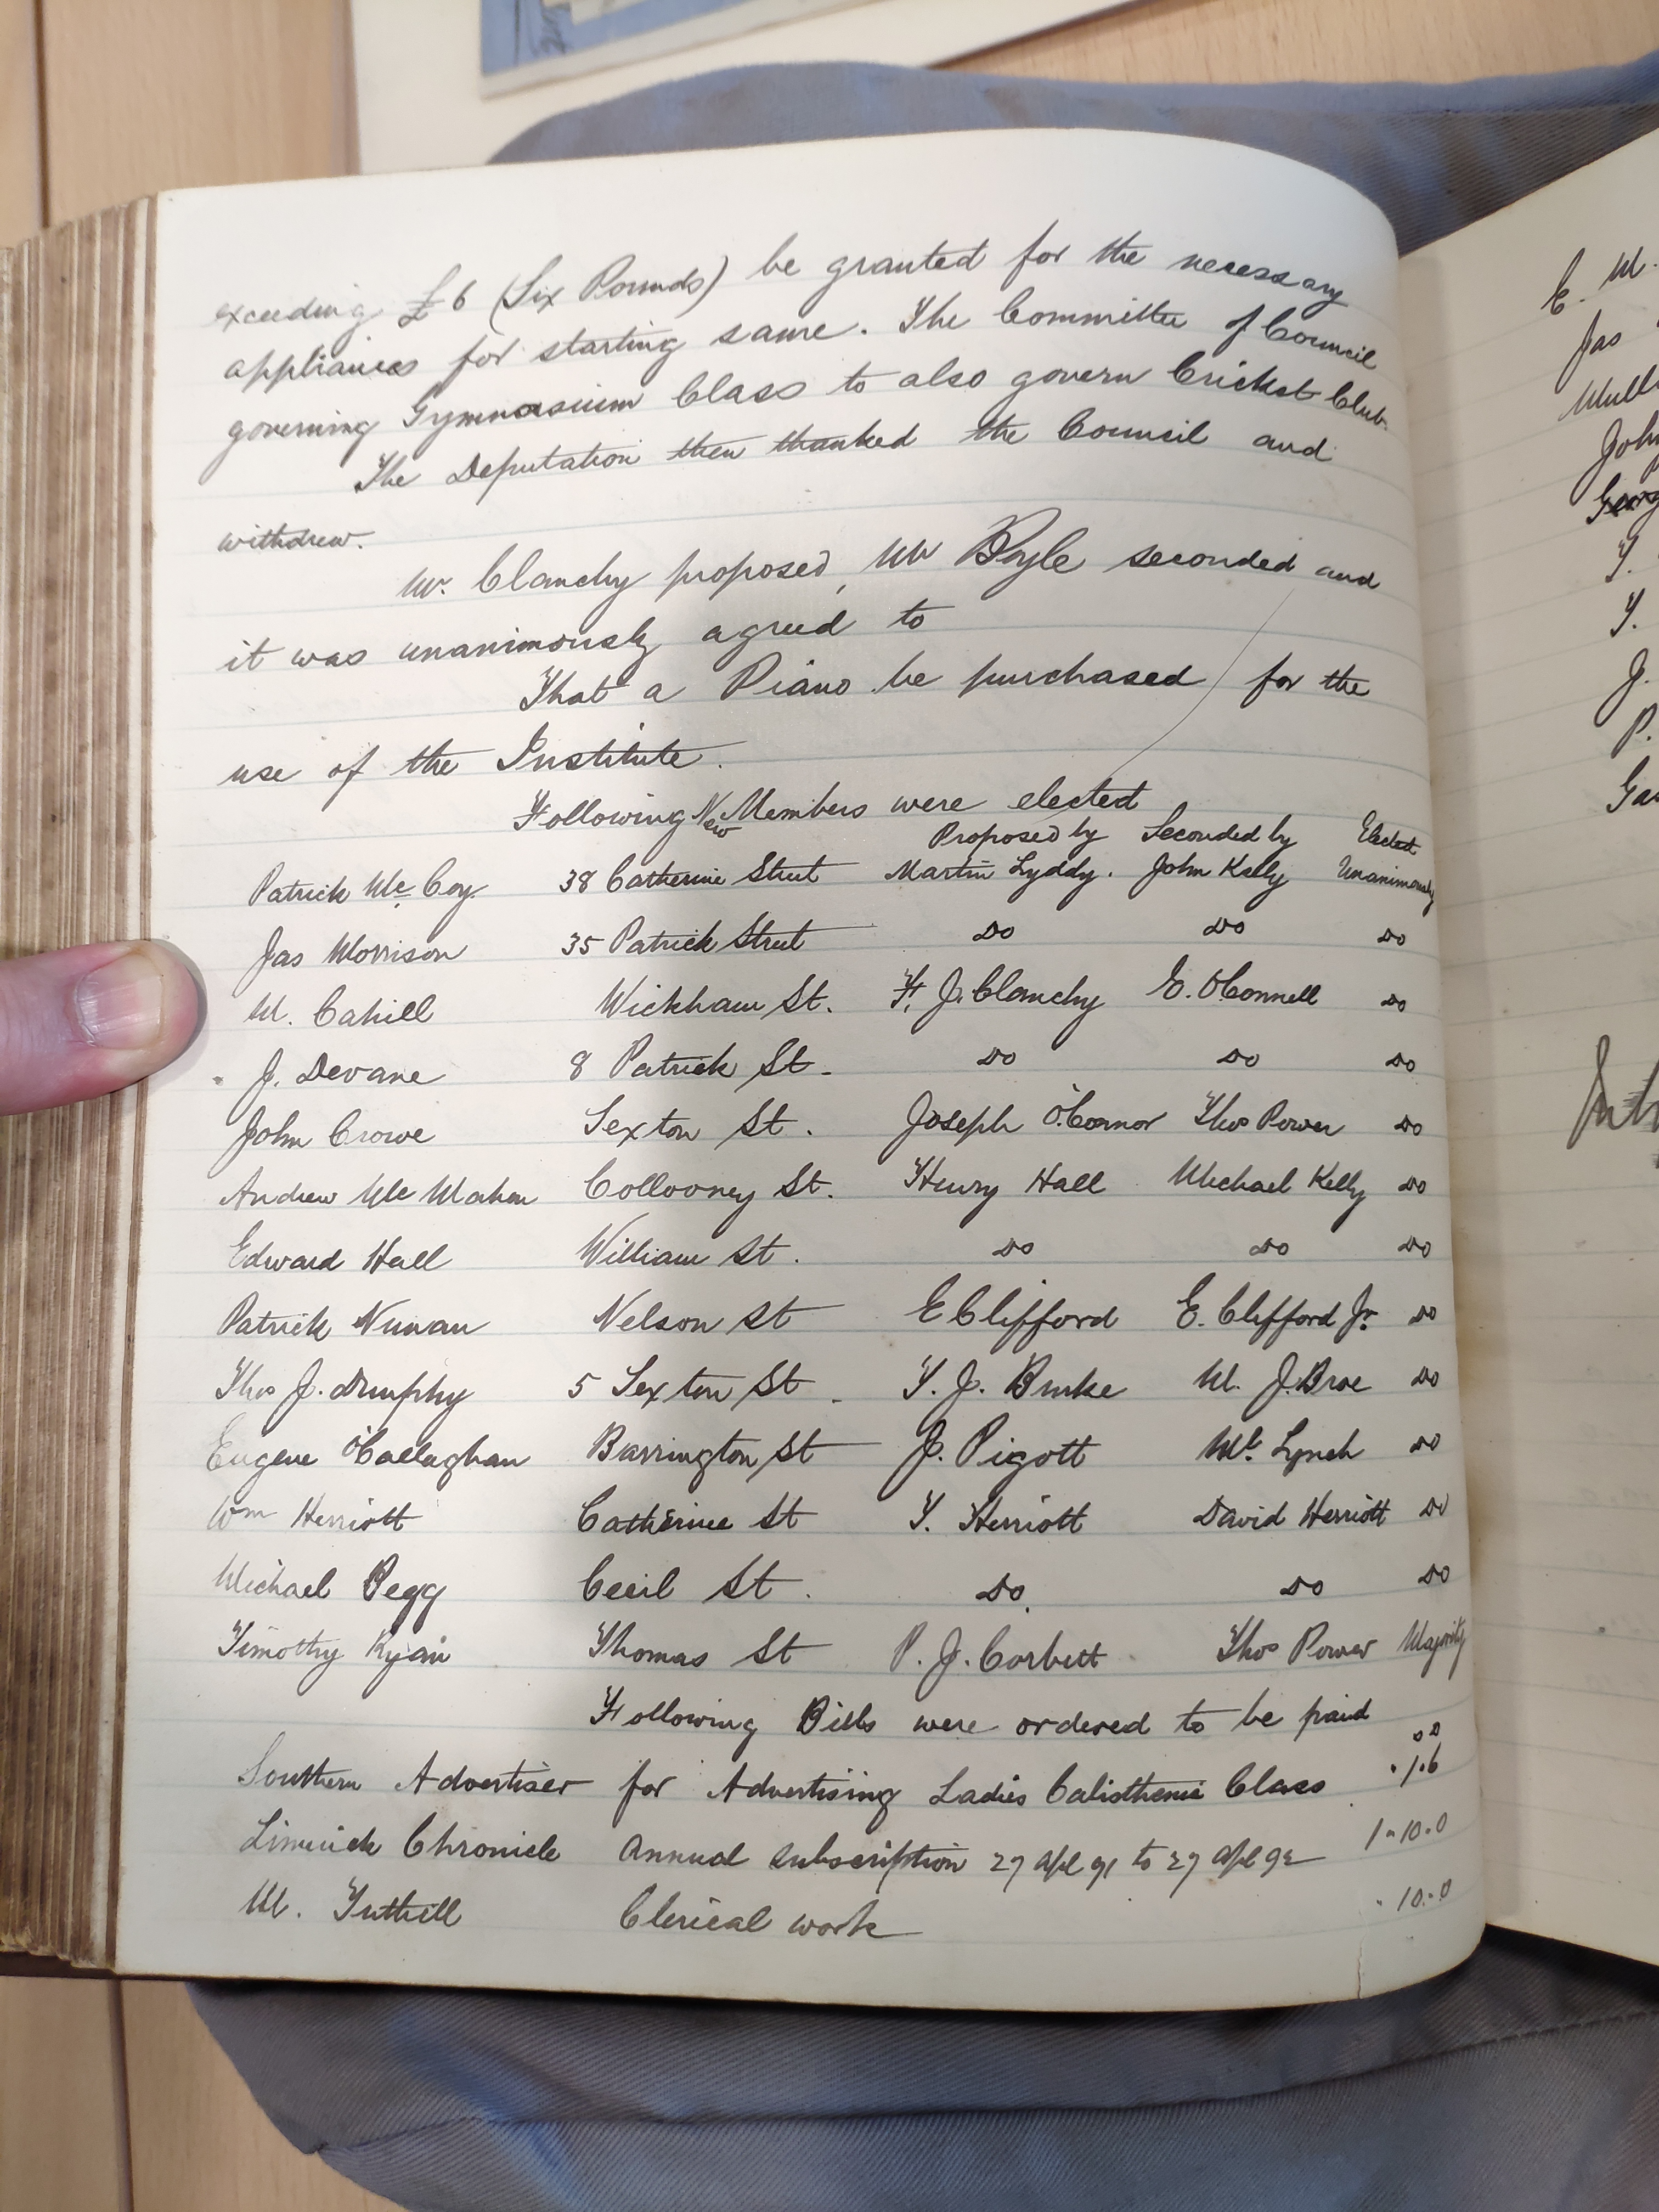 exceeding £6 (Six Pounds) be granted for the necessary
appliances for starting same. The Committee of Council
governing Gymnasium Class to also govern Cricket Club.
The Deputation then thanked the Council and
withdrew.
Mr. Clanchy proposed, Mr Boyle seconded and
it was unanimously agreed to
That a Piano be purchased for the
use of the Institute.
Following New Members were elected
Proposed by Seconded by Elected
Patrick Mc Coy. 38 Catherine Street Martin Lyddy. John Kelly Unanimously
Jas Morrison 35 Patrick Street Do Do Do
M. Cahill Wickham St. F. J. Clanchy E. O'Connell Do
J. Devane 8 Patrick St. Do Do Do
John Crowe Sexton St. Joseph O'Connor Thos Power Do
Andrew Mc Mahon Collooney St. Henry Hall Michael Kelly Do
Edward Hall William St. Do Do Do
Patrick Nunan Nelson St E Clifford E. Clifford Jr. Do
Thos J. Dunphy 5 Sexton St. T. J. Burke M. J. Broe Do
Eugene O'Callaghan Barrington St J. Pigott Mr. Lynch Do
Wm Herriott Catherine St T. Herriott David Herriott Do
Michael Begg Cecil St. Do. Do Do
Timothy Ryan Thomas St P. J. Corbett Thos Power Majority
Following Bills were ordered to be paid
Southern Advertiser for Advertising Ladies Calisthenic Class . 1.6
Limerick Chronicle Annual subscription 27 Apl 91 to 27 Apl 92 1-10.0
M. Tuthill Clerical work - 10.-0
E. M.
Jas
John
T.
T.
J.
P.